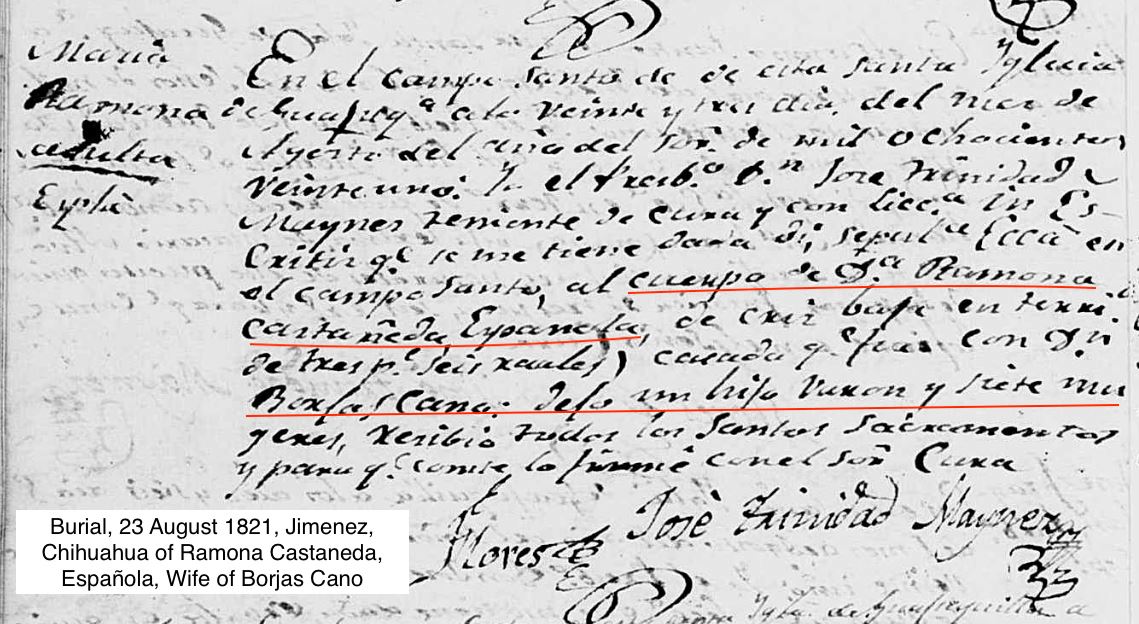 Maria
Ramona
adulta
Espla
En el campo santo de de esta Santa Yglesia
de Guajuq.a a los veinte y tres dias del mes de
Agosto del año del Sor. de mil ochocientos
veinte uno: Yo el Presb.o D.n Jose Trinidad
Maynes teniente de cura y con licc.a in Es-
critis q.e se me tiene dada di sepul.a Ecca en
el campo santo, al cuerpo de D.a Ramona
Castañeda Española, de cruz baja en terr.
de tres p.s seis reales) casada q.e fue con D.n
Borjas Cano: dejo un hijo varon y siete mu
geres, recibio todos los Santos Sacramentos
y para q.e conste lo firmé con el Sor. Cura
Flores
José Trinidad Maynez
Burial, 23 August 1821, Jimenez,
Chihuahua of Ramona Castaneda,
Española, Wife of Borjas Cano